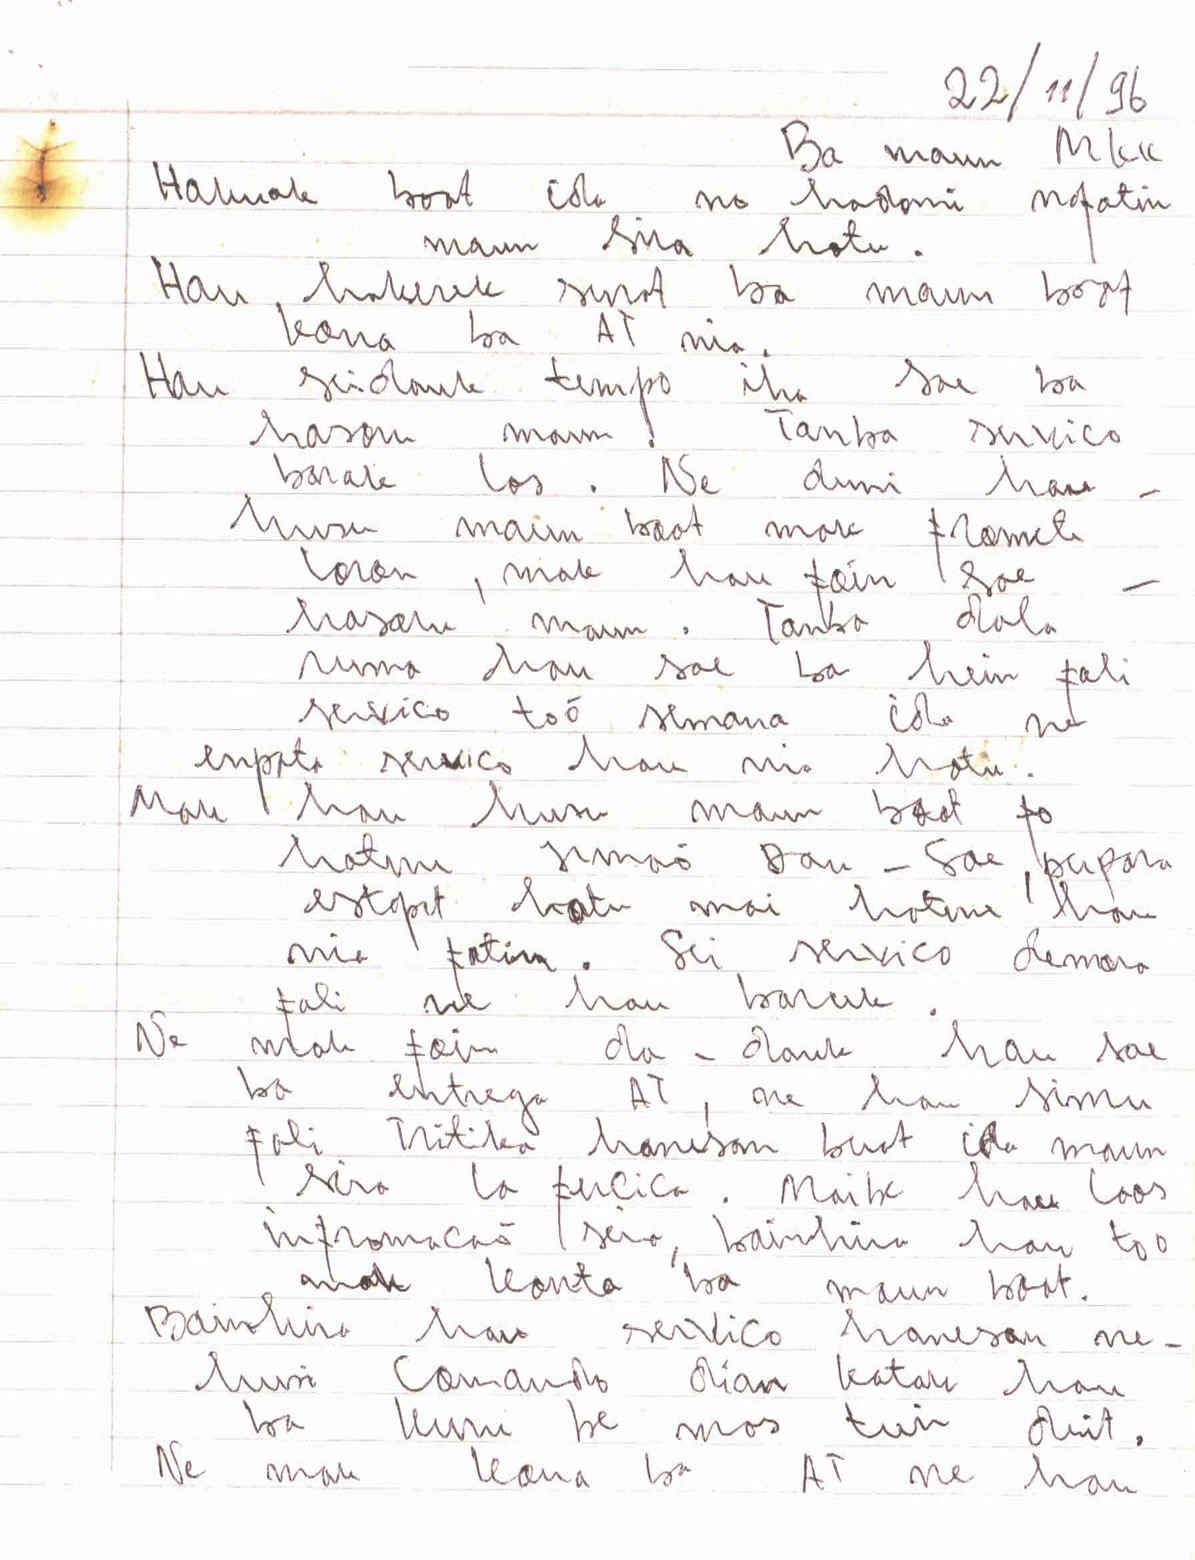 22/11/96
Ba maun MKK
Hakuak boot ida no hadomi nafatin
maun sira hotu.
Hau hakerek surat ba maun boot
kona ba AT nia.
Hau seidauk tempo iha sae ba
hasoru maun! Tanba servico
barak los. Ne duni hau -
husu maun boot mak
loron, mak hau foin sae -
hasoru maun. Tanba dala
ruma hau sae ba hein fali
servico toó semana ida ne
servico hau nia hotu.
Mak hau husu maun boot fo
hatene - Sae,
hotu mai hatene hau
nia fatin. Sei servico demora
fali ne hau barak.
Ne mak foin da - dauk hau sae
ba entrega AT, ne hau simu
fali Kritika hanesan buat ida maun
sira la precica. Maibe hau laos
infromacaó sira, bainhira hau too
mak konta ba maun boot.
Bainhira hau servico hanesan ne -
husi Comando dian katak hau
ba kuru be mos tuir deit.
Ne mak kona ba AT ne hau